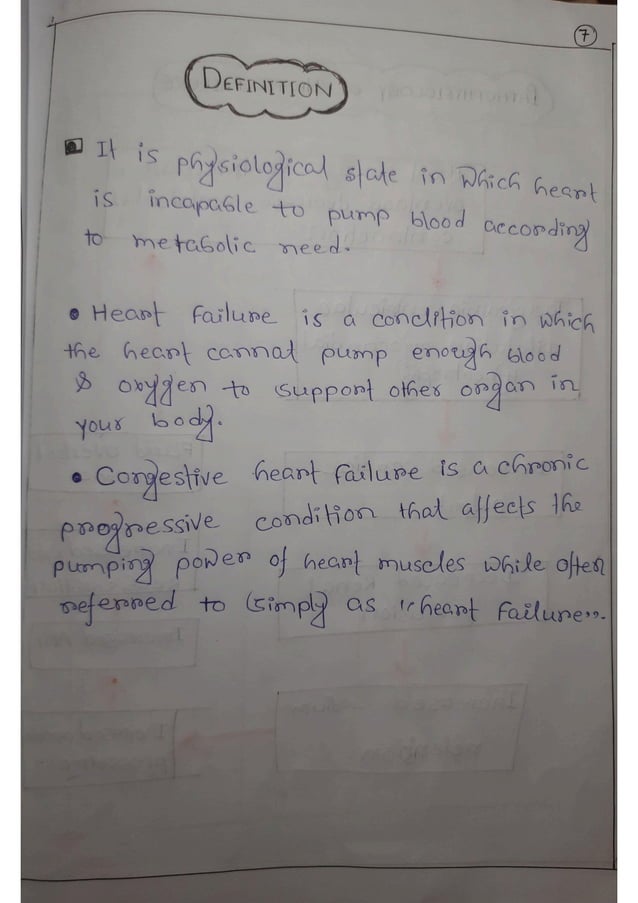 7
DEFINITION
It is physiological state in which heart
is incapable to pump blood according
to metabolic need.
• Heart failure is a condition in which
the heart cannat pump enough blood
& oxygen to support other organ in
your body.
• Congestive heart failure is a chronic
progressive condition that affects the
pumping power of heart muscles while often
referred to simply as "heart failure".